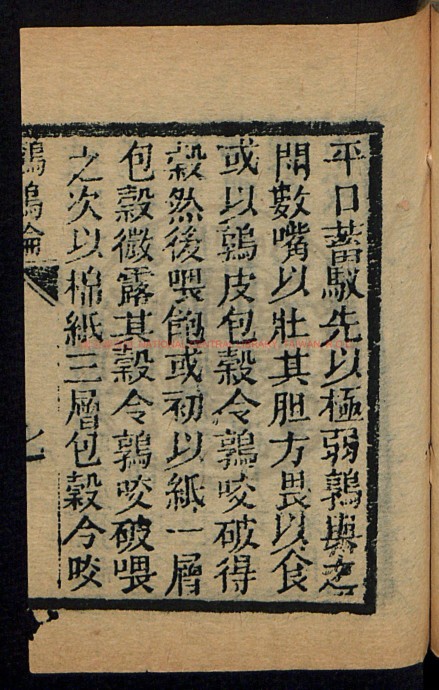 平日蓄馭先以極弱鶉與之
鬥數嘴以壯其胆方畏以食
或以鶉皮包穀令鶉咬破得
穀然後喂飽或初以紙一層
包穀微露其穀令鶉咬破喂
之次以棉紙三層包穀令咬
鵪鶉論
七